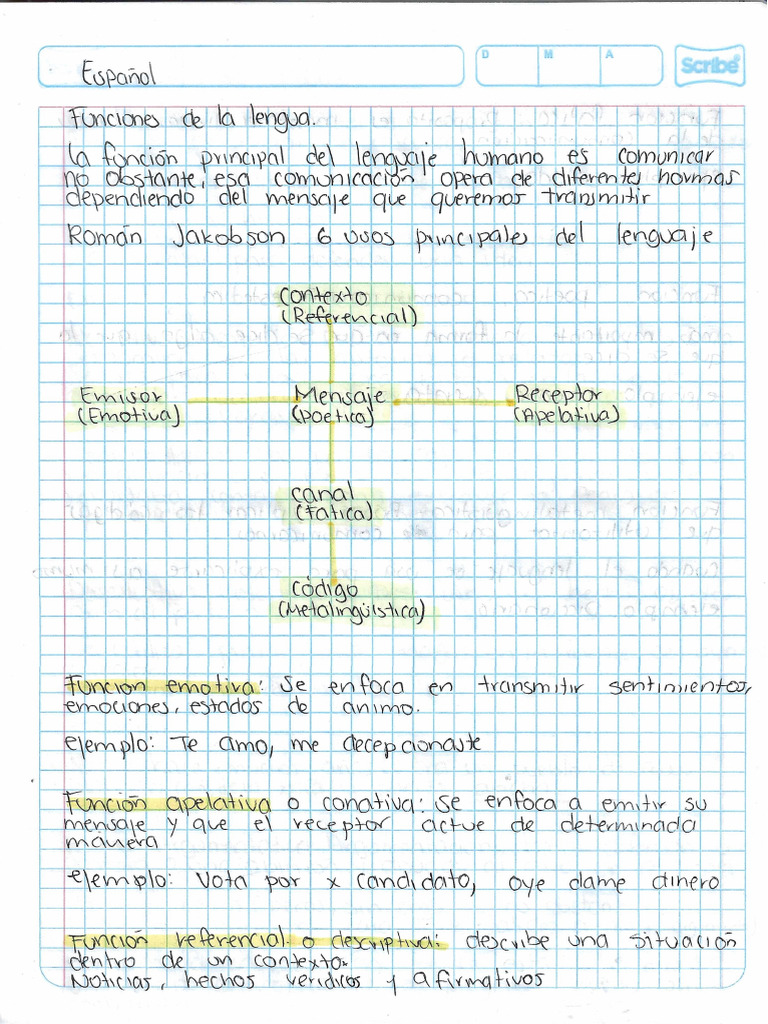 Español
D M A
Scribe
Funciones de la lengua.
la función principal del lenguaje humano es comunicar
no obstante, esa comunicación opera de diferentes normas
dependiendo del mensaje que queremos transmitir
Román Jakobson 6 usos principales del lenguaje
contexto
(Referencial)
Emisor Mensaje Receptor
(Emotiva) (Poetica) (Apelativa)
canal
(Fatica)
código
(Metalingüistica)
Función emotiva: se enfoca en transmitir sentimientos,
emociones, estados de animo.
ejemplo: Te amo, me decepcionaste
Función apelativa o conativa: se enfoca a emitir su
mensaje y que el receptor actue de determinada
manera
ejemplo: Vota por x candidato, oye dame dinero
Función referencial o descriptiva: describe una situación
dentro de un contexto.
Noticias, hechos veridicos y afirmativos